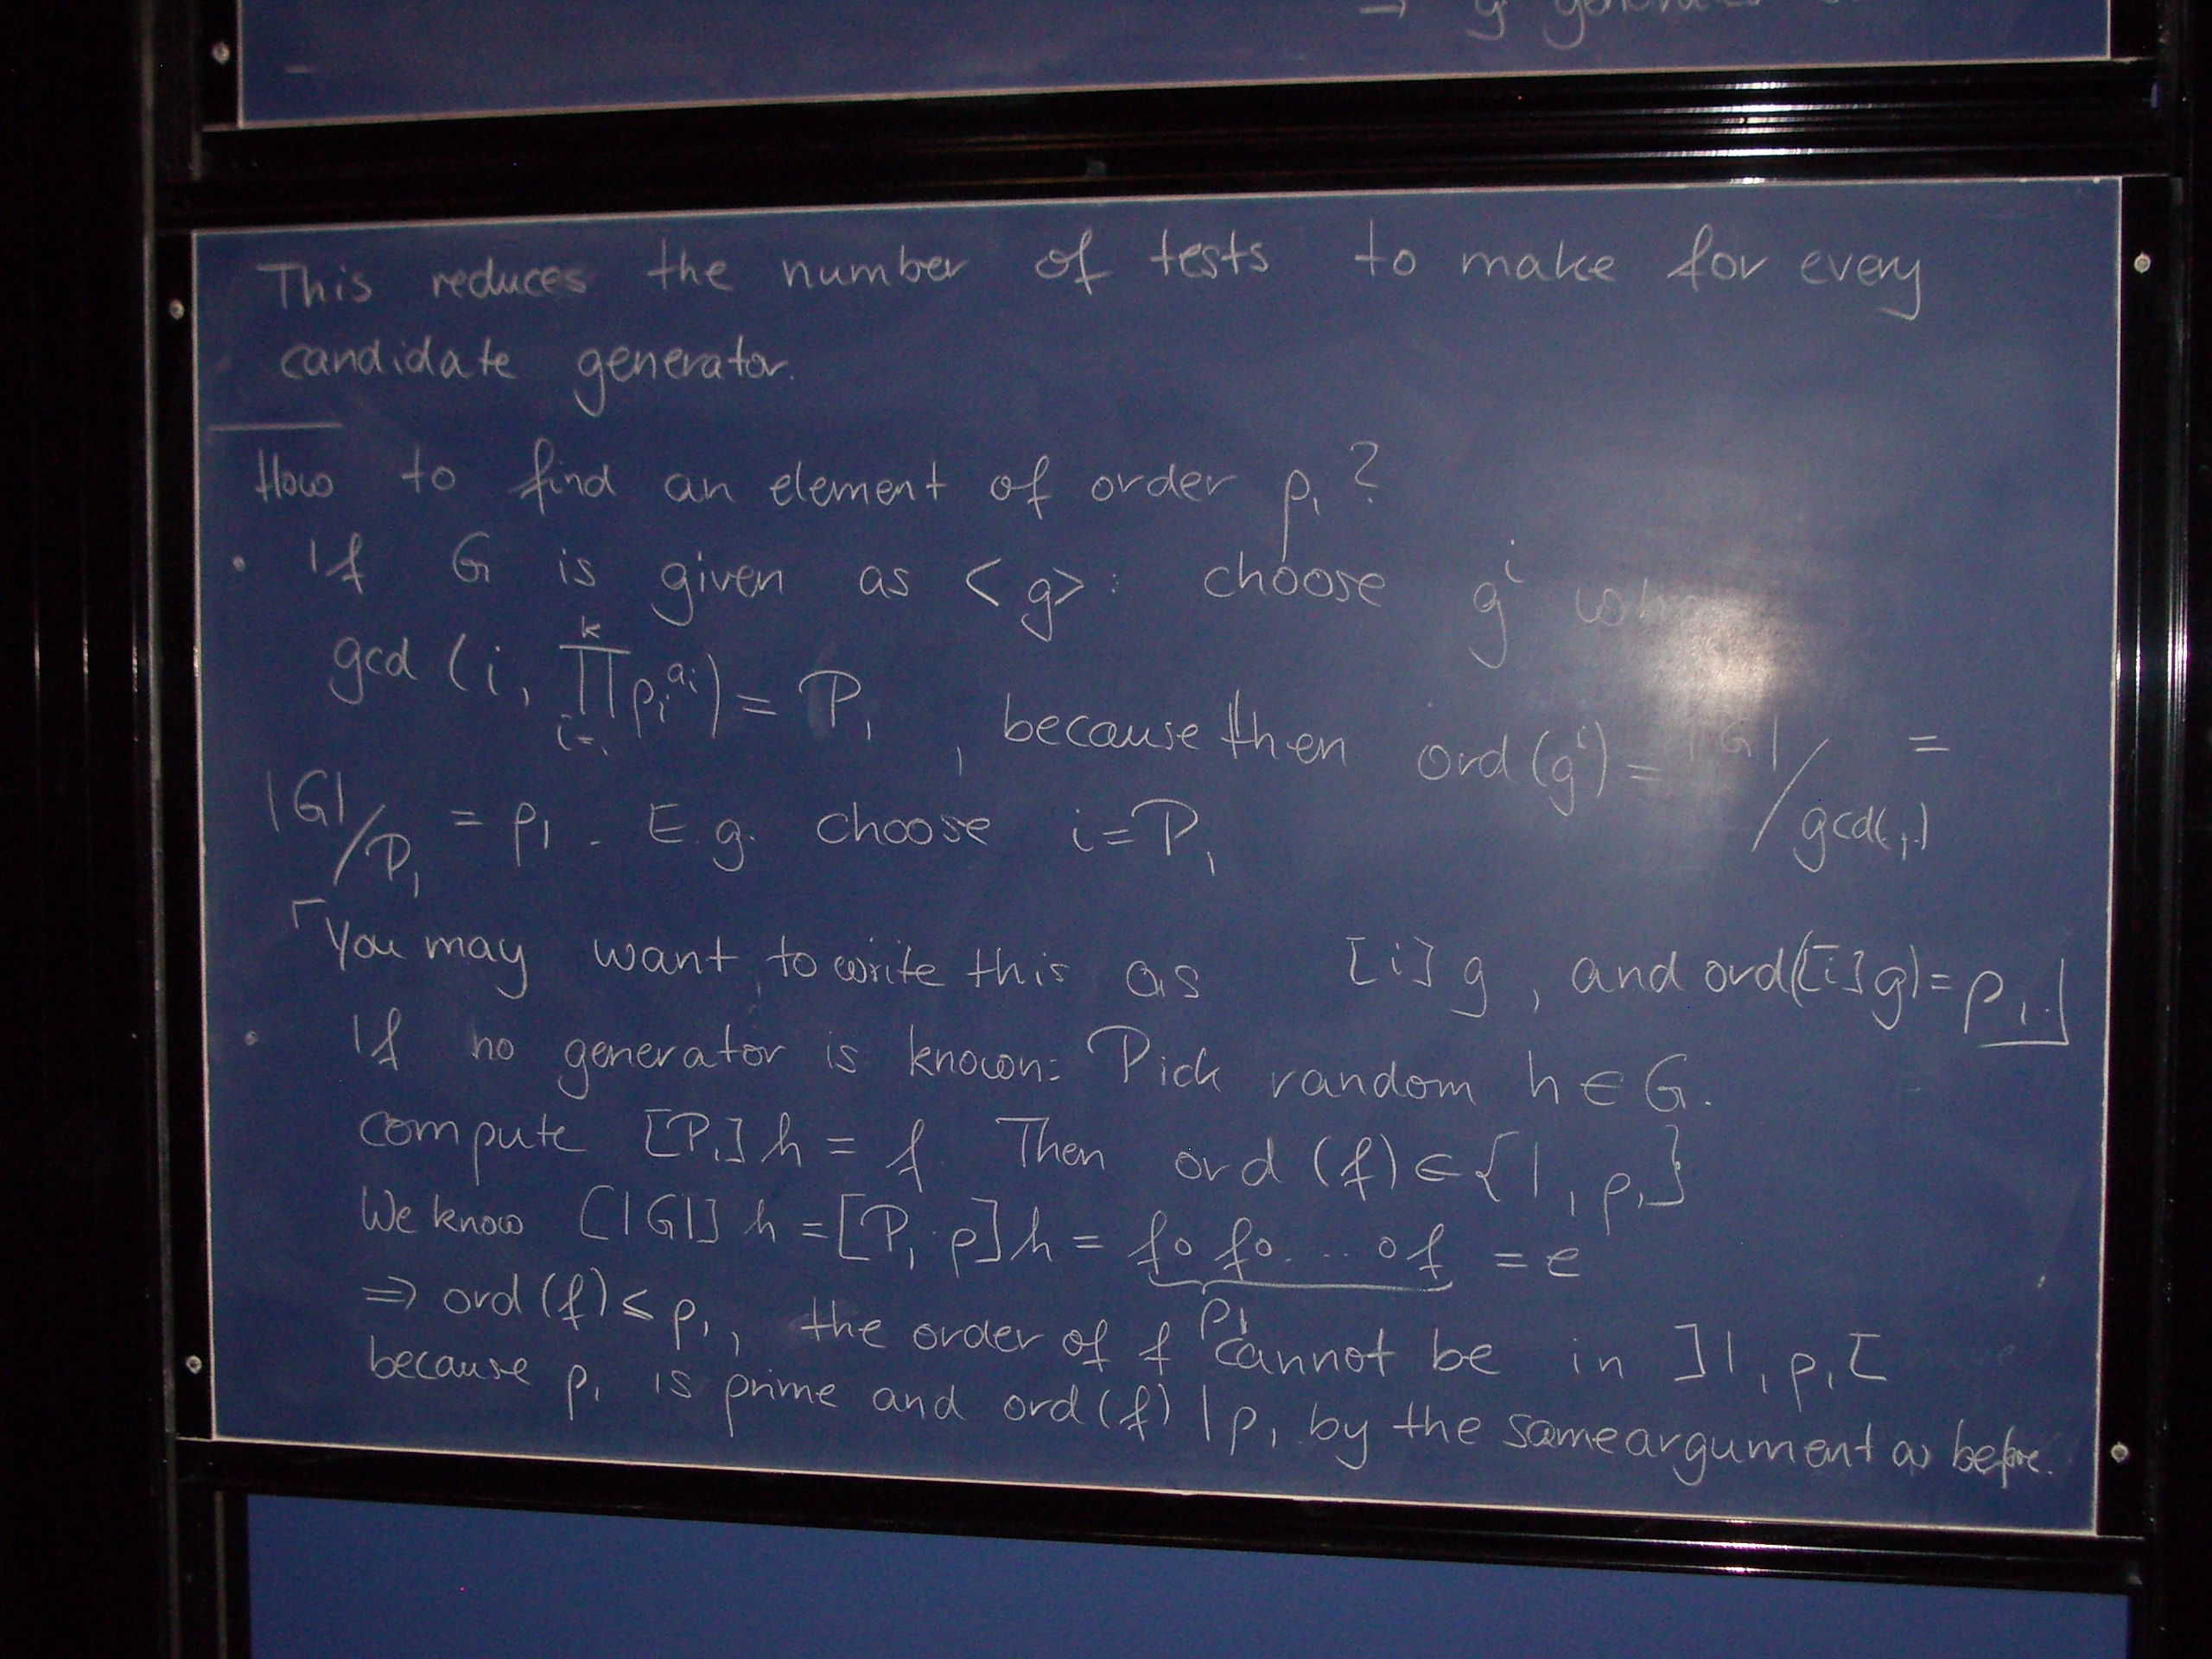 ⇒ g
This reduces the number of tests to make for every
candidate generator.
How to find an element of order p₁?
• If G is given as <g>: choose gⁱ
gcd (i, ∏ᵢ₌₁ᵏ pᵢ^aᵢ) = P₁, because then ord(gⁱ) = |G|/gcd(,) =
|G|/P₁ = p₁. E.g. choose i=P₁
⌈You may want to write this as [i]g, and ord([i]g)=p₁.⌋
• If no generator is known: Pick random h∈G.
compute [P₁]h = f Then ord (f)∈{1, p₁}
We know [|G|] h = [P₁·p]h = f∘f∘...∘f = e
p₁
⇒ ord(f)≤p₁, the order of f cannot be in ]1,p₁[
because p₁ is prime and ord(f) | p₁ by the same argument as before.